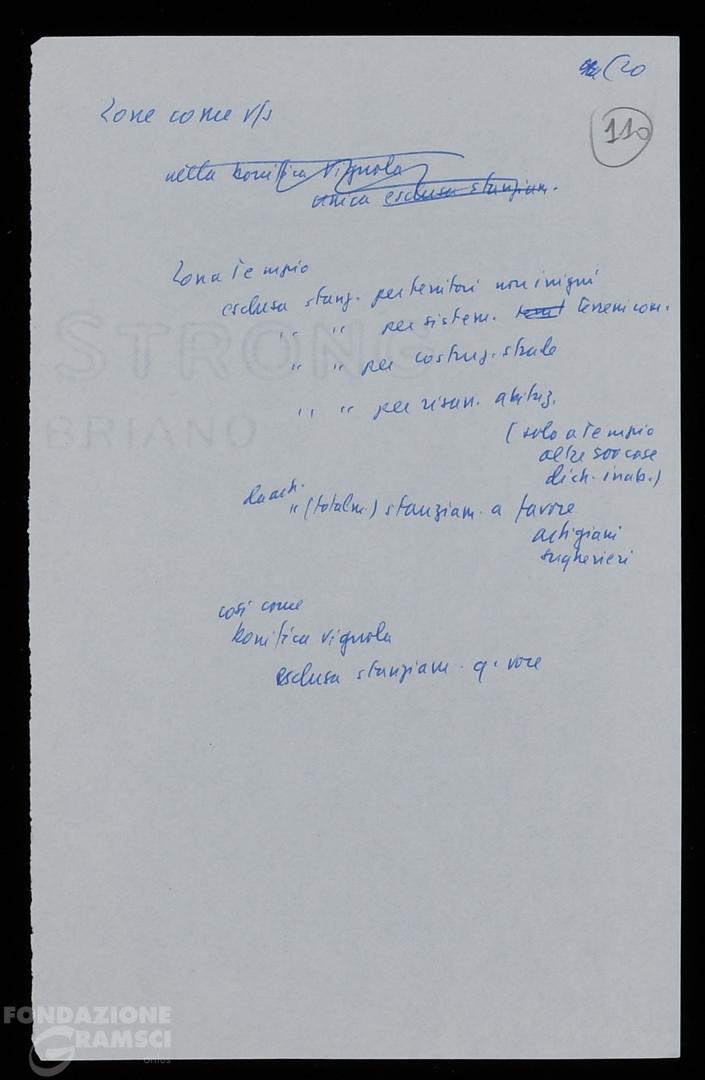 (20
110
Zone come v/s
nella bonifica Vignola
unica esclusa stanziam.
Zona Tempio
esclusa stanz. per territori non irrigui
" " per sistem. terreni com.
" " per costruz. strade
" " per risan. abitaz.
(solo a Tempio
oltre 500 case
dich. inab.)
" (totalm.) stanziam. a favore
artigiani
sugherieri
così come
bonifica Vignola
esclusa stanziam.
STRONG
BRIANO
FONDAZIONE
GRAMSCI
onlus